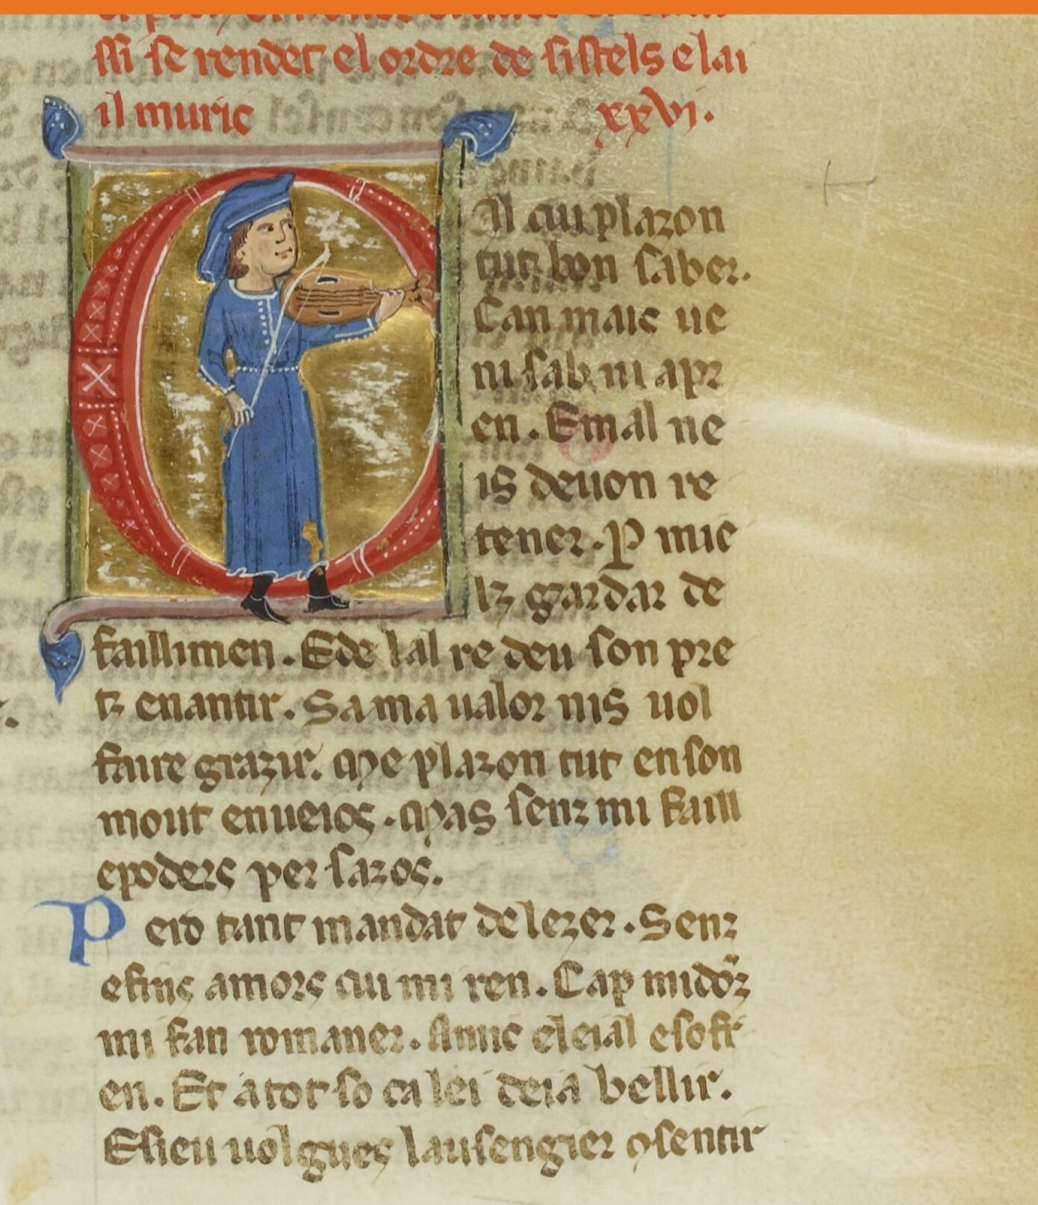 ssi se rendet el ordre de sistels e lai
il muric xxvi.
Al cui plazon
tut bon saber.
Can mais ue
ni sab ni apr
en. E mal ne
is deuon re
tener. P mie
lz gardar de
faillimen. E de lal re deu son pre
tz enantir. Sa ma ualor nis uol
faire grazir. Me plazon tut en son
mout enueios. Mas senz mi faill
e poders per sazos.
Pero tant mandat de lezer. Senz
e fins amors cui mi ren. Cap midõz
mi fan romaner. Amic e leial e sofr
en. Et a tot so ca lei deia bellir.
E sieu uolgues lausengier ꝯsentir